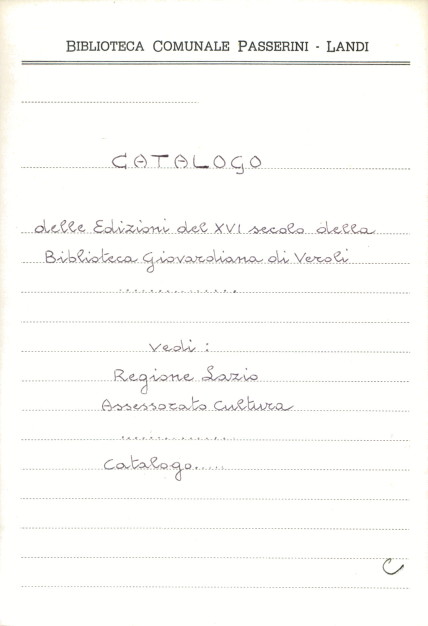 BIBLIOTECA COMUNALE PASSERINI - LANDI
CATALOGO
delle Edizioni del XVI secolo della
Biblioteca Giovardiana di Veroli
..............
vedi :
Regione Lazio
Assessorato Cultura
..............
Catalogo.....
C